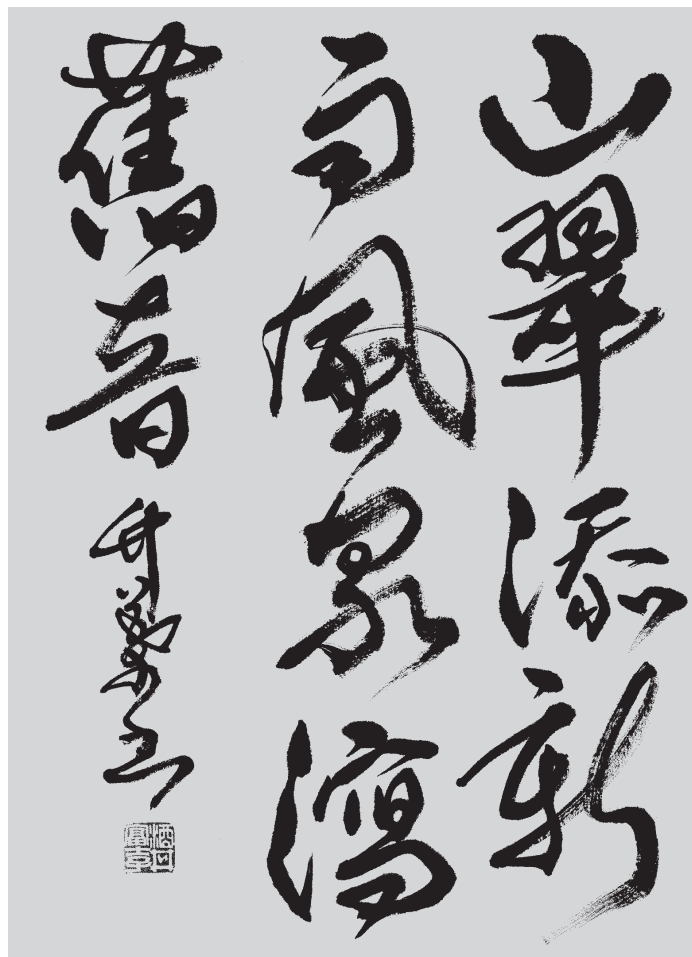 山翠添新
雨風泉瀉
舊音